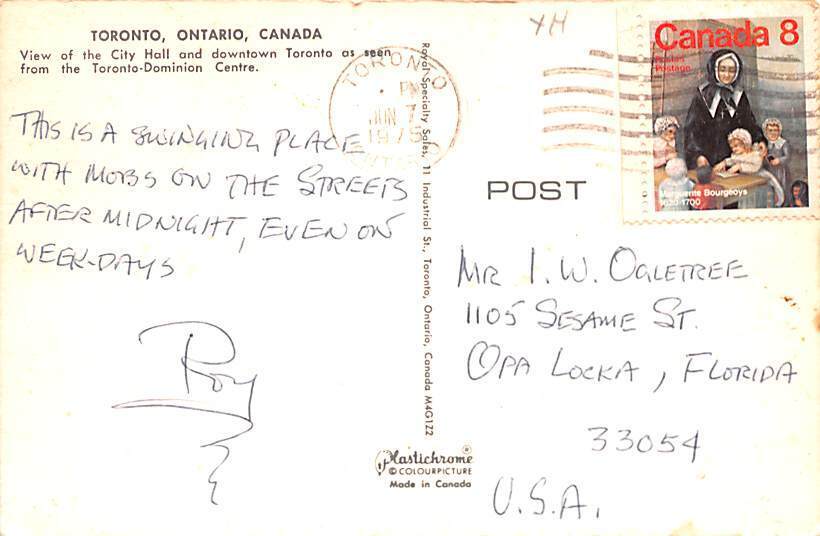 TORONTO, ONTARIO, CANADA
View of the City Hall and downtown Toronto as seen
from the Toronto-Dominion Centre.
THIS IS A SWINGING PLACE
WITH MOBS ON THE STREETS
AFTER MIDNIGHT, EVEN ON
WEEK-DAYS
Roy
Royal Specialty Sales, 11 Industrial St., Toronto, Ontario, Canada M4G1Z2
Plastichrome®
© COLOURPICTURE
Made in Canada
XH
TORONTO
PM
JUN 7
1975
ONTARIO
Canada 8
Postes
Postage
Marguerite Bourgeoys
1620-1700
POST
MR I. W. OGLETREE
1105 SESAME ST.
OPA LOCKA, FLORIDA
33054
U.S.A.